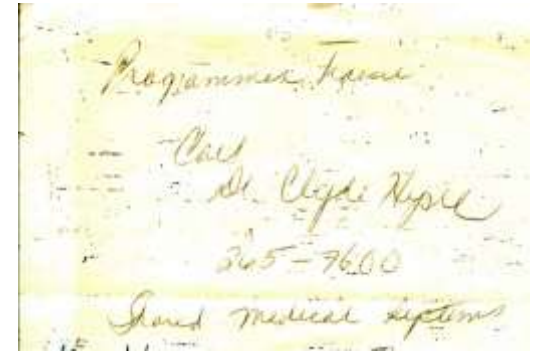 Programmer Trainee
Call
Dr. Clyde
265-9600
Shared Medical Systems